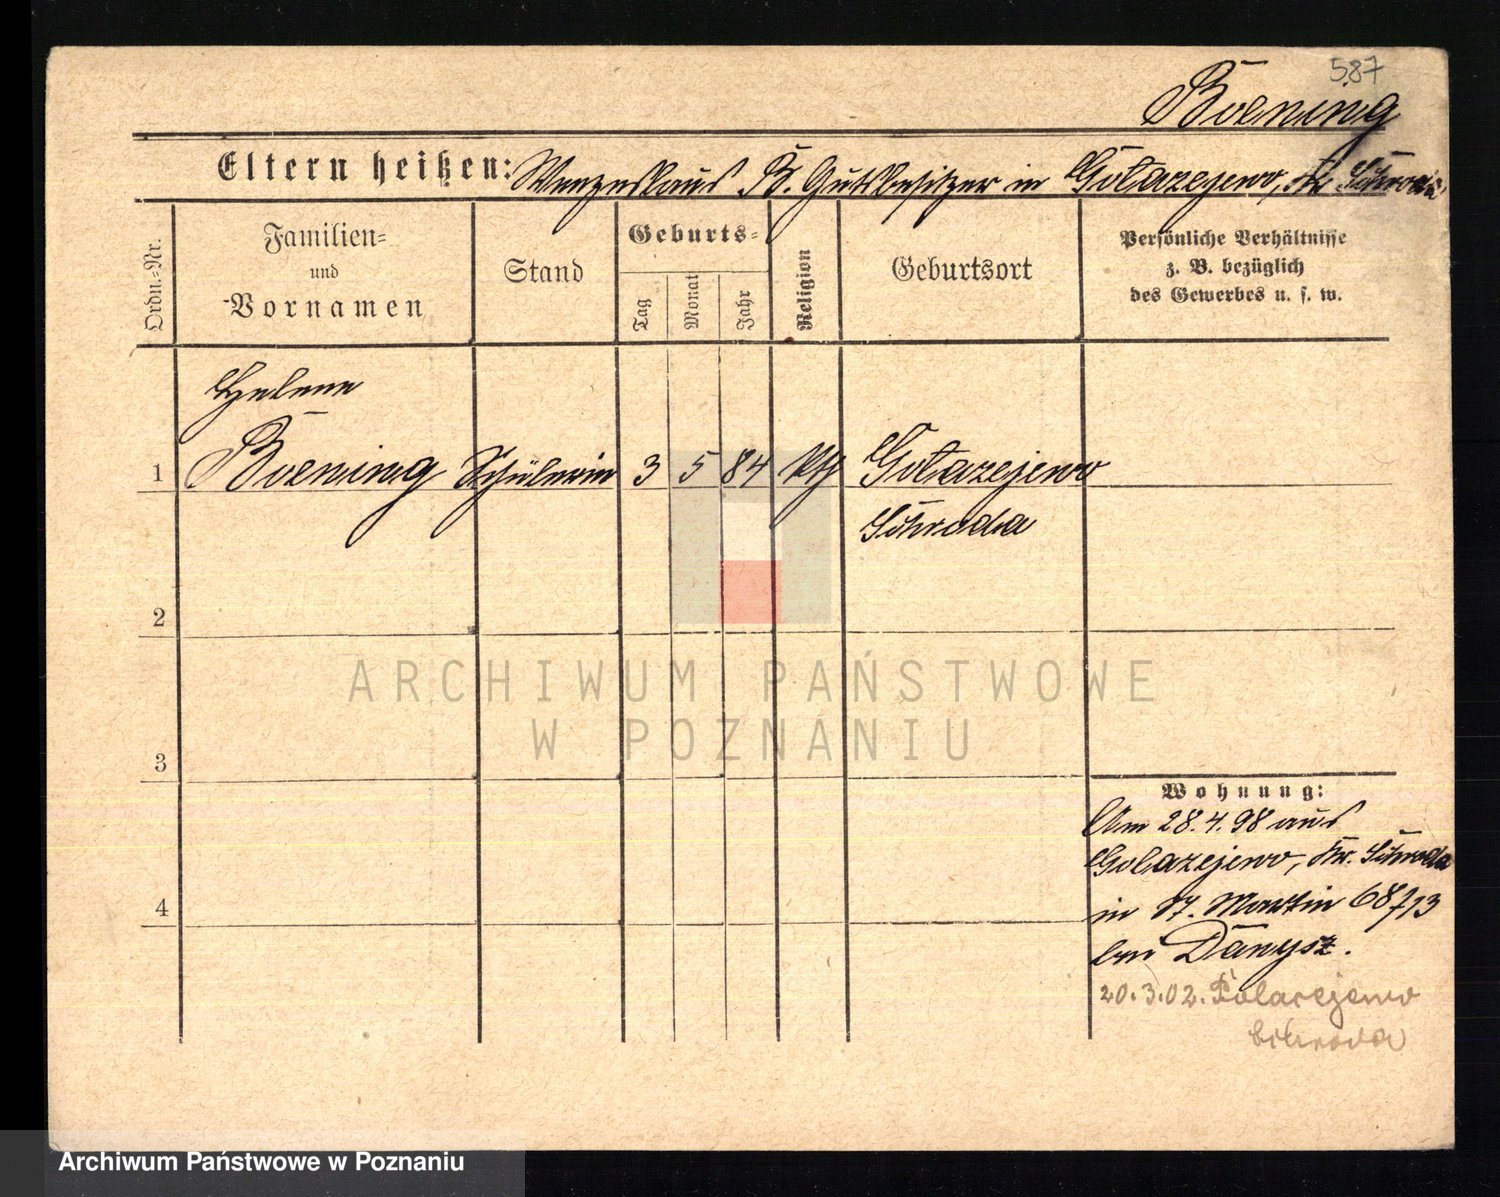 587
Boening
Eltern heißen: Wenzeslaus B. Gutsbesitzer in Golazejewo, Kr Schroda
Ordn.-Nr.
Familien-
und
-Vornamen
Stand
Geburts-
Tag
Monat
Jahr
Religion
Geburtsort
Persönliche Verhältnisse
z. B. bezüglich
des Gewerbes u. s. w.
Helene
1 Boening Schülerin 3 5 84 kth Golazejewo
Schroda
2
ARCHIWUM PAŃSTWOWE
W POZNANIU
3
Wohnung:
Am 28.4.98 aus
Golazejewo, Kr. Schroda
4
in St. Martin 68/13
bei Danysz.
20.3.02. Golazejewo
b Schroda
Archiwum Państwowe w Poznaniu